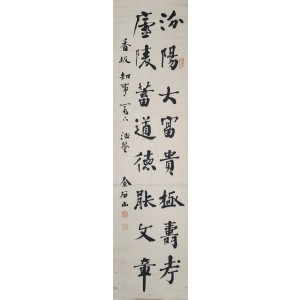 汾陽大富貴極壽考
廬陵蓄道德能文章
香坂知事
金石山